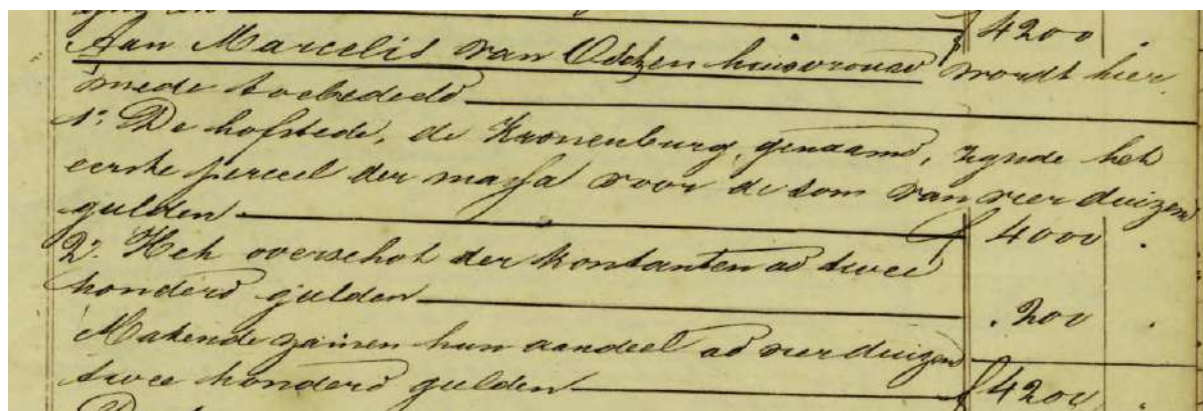 f 4200 .
Aan Marcelis van Osch en huisvrouw wordt hier
mede toebedeeld
1o. De hofstede, de Kronenburg, genaamd, zynde het
eerste perceel der massa voor de som van vier duizend
gulden f 4000 .
2o. Het overschot der kontanten ad twee
honderd gulden . 200 .
Makende zamen hun aandeel ad vier duizend
twee honderd gulden f 4200 .